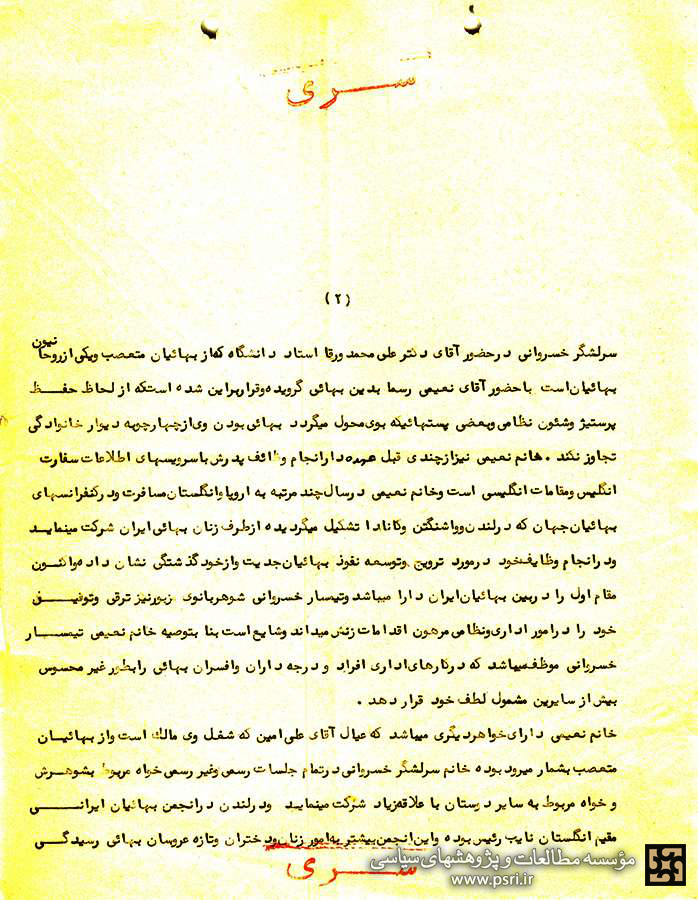 سری
(۲)
سرلشگر خسروانی درحضور آقای دکتر علی محمد ورقا استاد دانشگاه که از بهائیان متعصب ویکی ازروحانیون
بهائیان است باحضور آقای نعیمی رسما بدین بهائی گرویده وقرار براین شده است که از لحاظ حفظ
پرستیژ وشئون نظامی وبعضی پستهائیکه بوی محول میگردد بهائی بودن وی از چهارچوبه دیوار خانوادگی
تجاوز نکند . خانم نعیمی نیز از چندی قبل عهده دار انجام وظائف پدرش با سرویسهای اطلاعات سفارت
انگلیس ومقامات انگلیسی است وخانم نعیمی درسال چند مرتبه به اروپا وانگلستان مسافرت ودرکنفرانسهای
بهائیان جهان که درلندن وواشنگتن وکانادا تشکیل میگردیده ازطرف زنان بهائی ایران شرکت مینماید
ودرانجام وظایف خود درمورد ترویج وتوسعه نفوذ بهائیان جدیت وازخود گذشتگی نشان داده واکنون
مقام اول را دربین بهائیان ایران دارا میباشد وتیسار خسروانی شوهر بانوی مزبور نیز ترقی وتوفیق
خود را درامور اداری ونظامی مرهون اقدامات زنش میداند وشایع است بنا بتوصیه خانم نعیمی تیمسار
خسروانی موظف میباشد که درکارهای اداری افراد و درجه داران وافسران بهائی رابطور غیر محسوس
بیش از سایرین مشمول لطف خود قرار دهد .
خانم نعیمی دارای خواهر دیگری میباشد که عیال آقای علی امین که شغل وی مالک است واز بهائیان
متعصب بشمار میرود بوده خانم سرلشگر خسروانی درتمام جلسات رسمی وغیر رسمی خواه مربوط بشوهرش
و خواه مربوط به سایر دوستان با علاقه زیاد شرکت مینماید ودرلندن درانجمن بهائیان ایرانی
مقیم انگلستان نایب رئیس بوده واین انجمن بیشتر به امور زنان ودختران وتازه عروسان بهائی رسیدگی
سری
مؤسسه مطالعات و پژوهشهای سیاسی
www.psri.ir